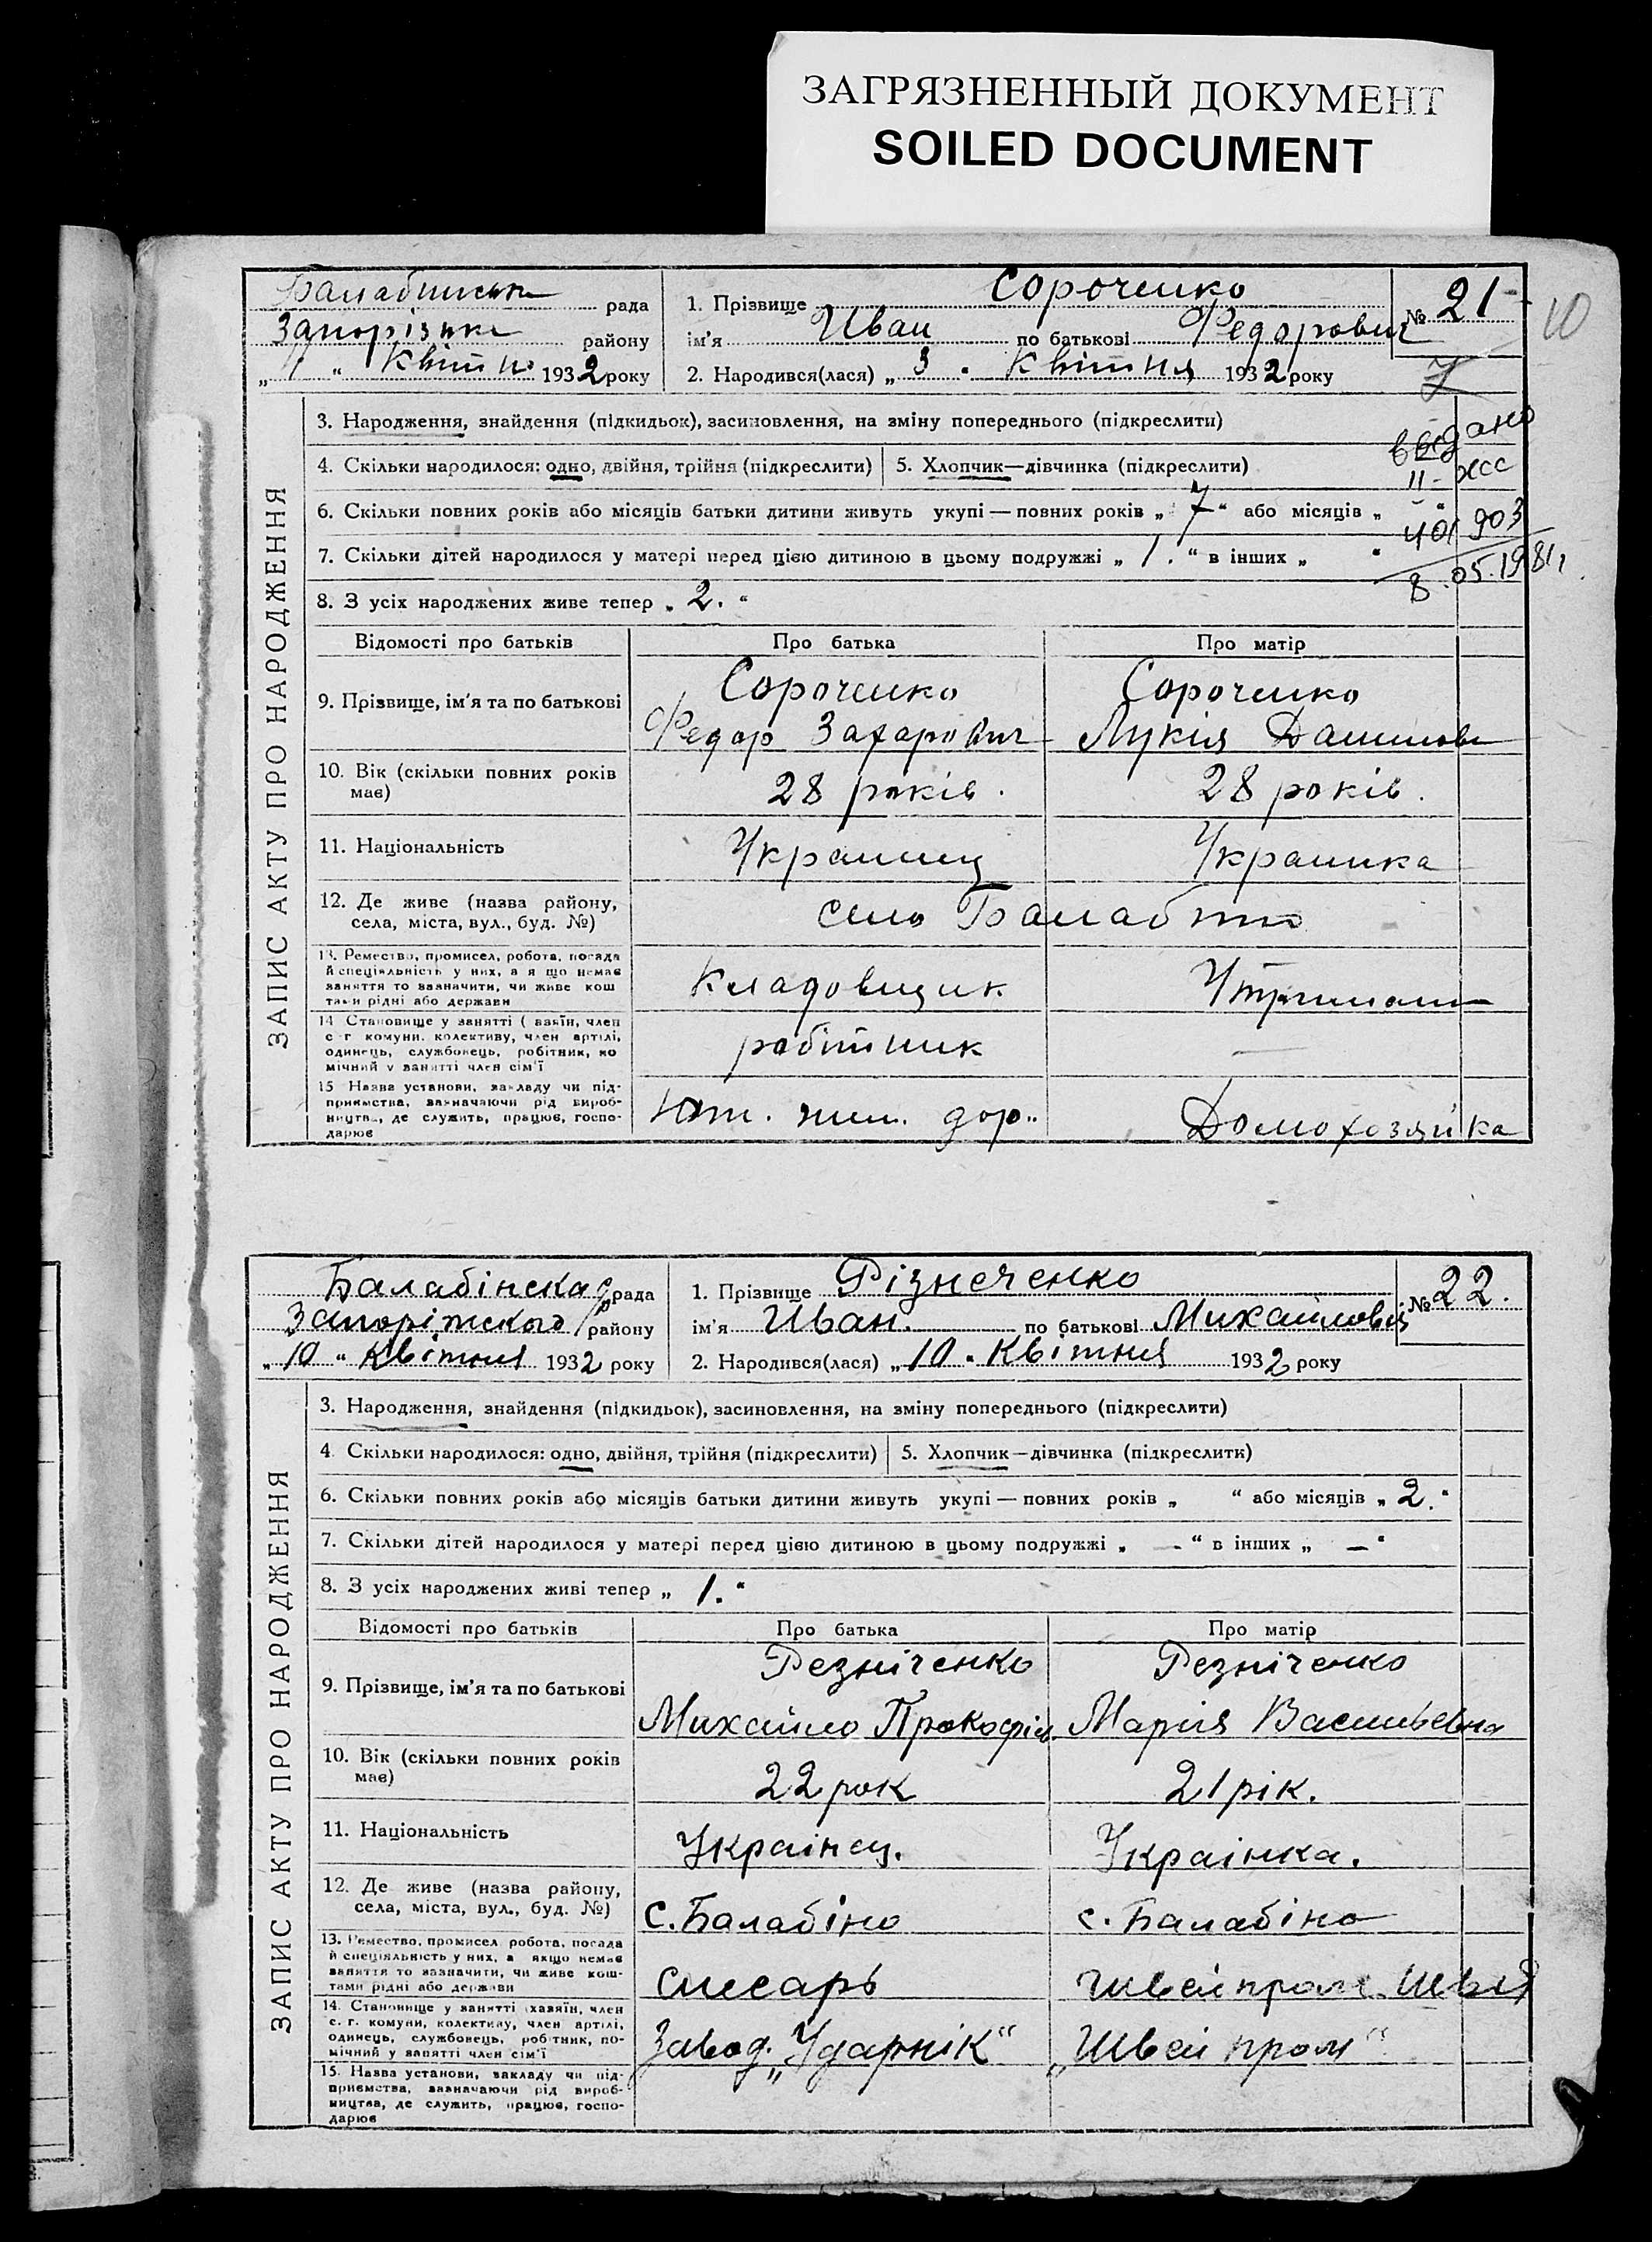 ЗАГРЯЗНЕННЫЙ ДОКУМЕНТ
SOILED DOCUMENT
10
рада
району
193 2 року
1. Прізвище Сороченко
ім'я Иван по батькові Федорович
2. Народився(лася) „ 3 . Квітня 193 2 року
№ 21
7
видано
II-
401903
8.05.1981
ЗАПИС АКТУ ПРО НАРОДЖЕННЯ
3. Народження, знайдення (підкидьок), засиновлення, на зміну попереднього (підкреслити)
4. Скільки народилося: одно, двійня, трійня (підкреслити) 5. Хлопчик—дівчинка (підкреслити)
6. Скільки повних років або місяців батьки дитини живуть укупі — повних років „ 7 “ або місяців „ “
7. Скільки дітей народилося у матері перед цією дитиною в цьому подружжі „ 1. “ в інших „ “
8. З усіх народжених живе тепер „ 2. “
Відомості про батьків Про батька Про матір
9. Прізвище, ім'я та по батькові
Сороченко Сороченко
Федор Захарович Лукія
10. Вік (скільки повних років має)
28 років. 28 років.
11. Національність
Украинец Украинка
12. Де живе (назва району,
села, міста, вул., буд. №)
село Балабино
13. Ремество, промисел, робота, посада
й спеціяльність у них, а я що немає
заняття то зазначити, чи живе кош
тами рідні або держави
Кладовщик
14 Становище у занятті ( азяїн, член
с г комуни, колективу, член артілі,
одинець, службовець, робітник, по
мічний у занятті член сім'ї
робітник
15 Назва установи, закладу чи під-
приємства, зазначаючи рід вироб-
ництва, де служить, працює, госпо-
дарює
дор. Домохозяйка
Балабінска рада
Запоріжского району
„ 10 “ Квітня 193 2 року
1. Прізвище Різнеченко
ім'я Иван. по батькові Михайлович
2. Народився(лася) „ 10 . Квітня 193 2 року
№ 22.
ЗАПИС АКТУ ПРО НАРОДЖЕННЯ
3. Народження, знайдення (підкидьок), засиновлення, на зміну попереднього (підкреслити)
4. Скільки народилося: одно, двійня, трійня (підкреслити) 5. Хлопчик—дівчинка (підкреслити)
6. Скільки повних років або місяців батьки дитини живуть укупі — повних років „ “ або місяців „ 2. “
7. Скільки дітей народилося у матері перед цією дитиною в цьому подружжі „ — “ в інших „ — “
8. З усіх народжених живі тепер „ 1. “
Відомості про батьків Про батька Про матір
9. Прізвище, ім'я та по батькові
Резніченко Резніченко
Михайло Прокофів Мария Васильевна
10. Вік (скільки повних років має)
22 рок 21 рік.
11. Національність
Украінец. Украінка.
12. Де живе (назва району,
села, міста, вул., буд. №)
с. Балабіно с. Балабіно
13. Ремество, промисел робота, посада
й спеціяльність у них, а якщо немає
заняття то зазначити, чи живе кош-
тами рідні або держави
слесарь Швейпром. Швія
14. Становище у занятті хазяїн, член
с. г. комуни, колективу, член артілі,
одинець, службовець, робітник, по-
мічний у занятті член сім'ї
Завод. „Ударнік“ „Швейпром“
15. Назва установи, закладу чи під-
приємства, зазначаючи рід вироб-
ництва, де служить, працює, госпо-
дарює